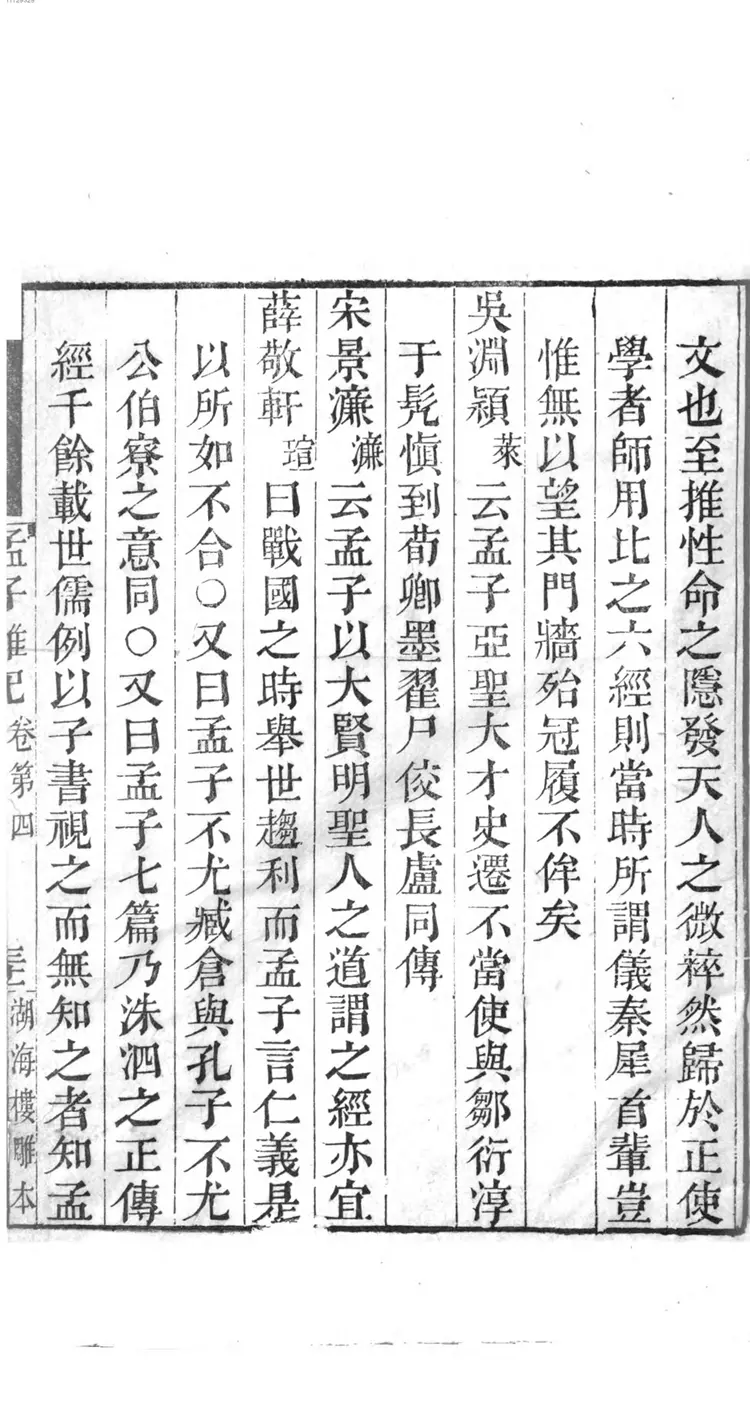 文也至推性命之隱發天人之微粹然歸於正使
學者師用比之六經則當時所謂儀秦犀首輩豈
惟無以望其門牆殆冠履不侔矣
吳淵穎萊云孟子亞聖大才史遷不當使與鄒衍淳
于髡愼到荀卿墨翟尸佼長盧同傳
宋景濂濂云孟子以大賢明聖人之道謂之經亦宜
薛敬軒瑄曰戰國之時舉世趨利而孟子言仁義是
以所如不合○又曰孟子不尤臧倉與孔子不尤
公伯寮之意同○又曰孟子七篇乃洙泗之正傳
經千餘載世儒例以子書視之而無知之者知孟
孟子雜記 卷第四 三 湖海樓雕本